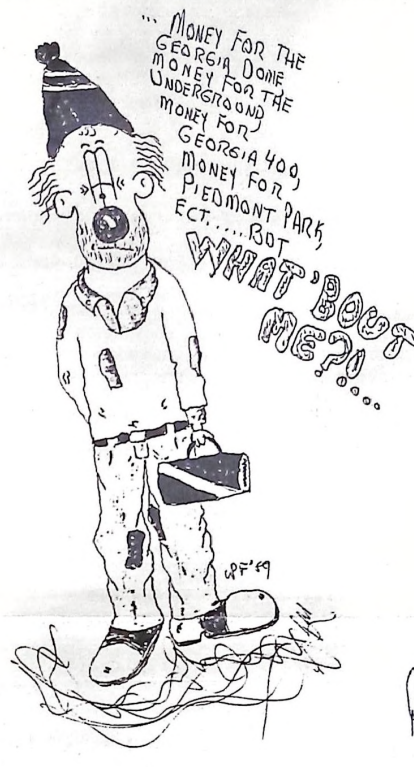 ... MONEY FOR THE
GEORGIA DOME,
MONEY FOR THE
UNDERGROUND,
MONEY FOR
GEORGIA 400,
MONEY FOR
PIEDMONT PARK,
ECT......BOT
WHAT 'BOUT
ME?!...